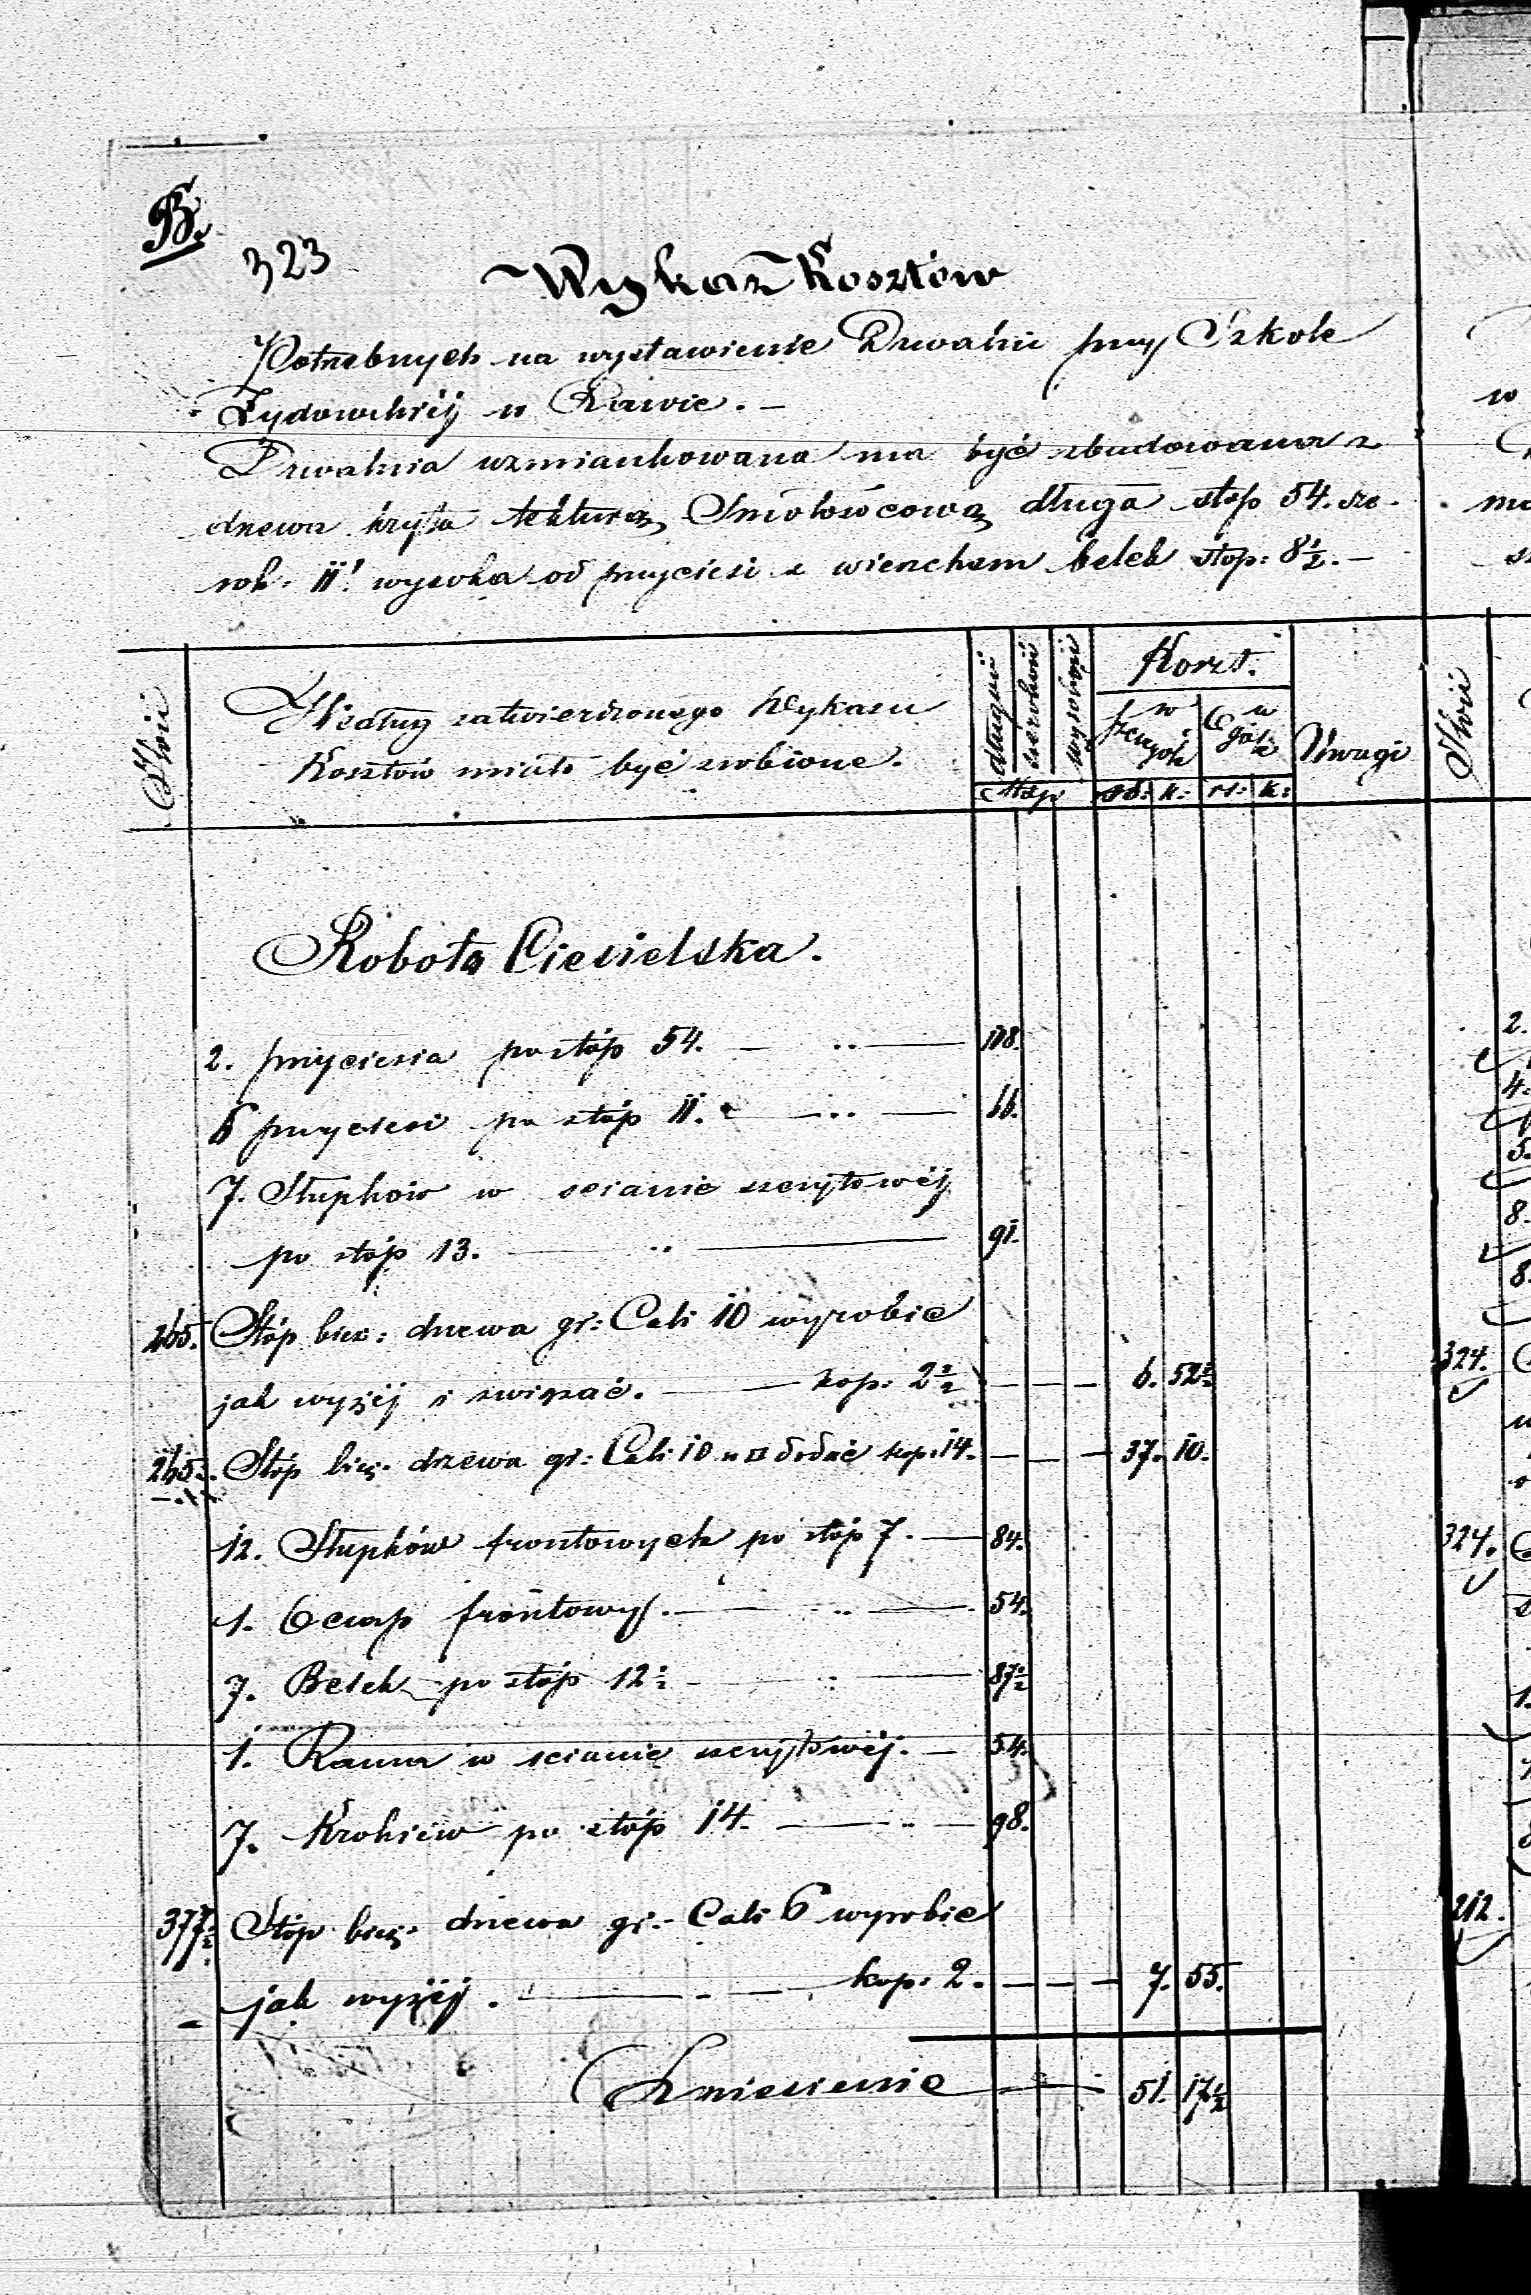 B.
323
Wykaz Kosztów
Potrzebnych na wystawienie Drwalni przy Szkole
Żydowskiéj w Rawie. —
Drwalnia wzmiankowana ma być zbudowana z
drzewa kryta tekturą Smołowcową długa stóp 54. sze-
rok. 11! wysoka od przyciesi z wierzchem belek stóp: 8½. —
Ilość
Według zatwierdzonego Wykazu
Kosztów miało być zrobione.
długość
szerokość
wysokość
Stóp
Koszt.
w szczególe
w Ogóle
rs: k: rs: k:
Uwagi
Ilość
Robota Ciesielska.
2. przyciesia po stóp 54. — .. — 108.
6 przyciesi po stóp 11. — .. — 66.
7. Słupków w scianie szczytowéj
po stóp 13. — .. — 91.
265. Stóp bież: drzewa gr: Cali 10 wyrobić
jak wyżéj i związać. — kop: 2½ — — — 6. 52½
265. Stóp bież. drzewa gr: Cali 10 w □ dodać kop: 14. — — — 37. 10.
12. Słupków frontowych po stóp 7. — 84.
1. Oczap frontowy. — .. — 54.
7. Belek po stóp 12½ — .. — 87½
1. Rama w scianie szczytowéj. — 54.
7. Krokiew po stóp 14. — .. — 98.
377½ Stóp bież. drzewa gr: Cali 6 wyrobić
jak wyżéj. — . — kop: 2. — — — 7. 55.
Zniesienie — 51. 17½
324.
324.
212.